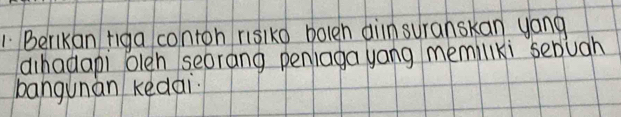 1. Berikan tiga contoh risiko boleh diinsuranskan yang
dihadapi oleh seorang peniaga yang memiliki sebuah
bangunan kedai.